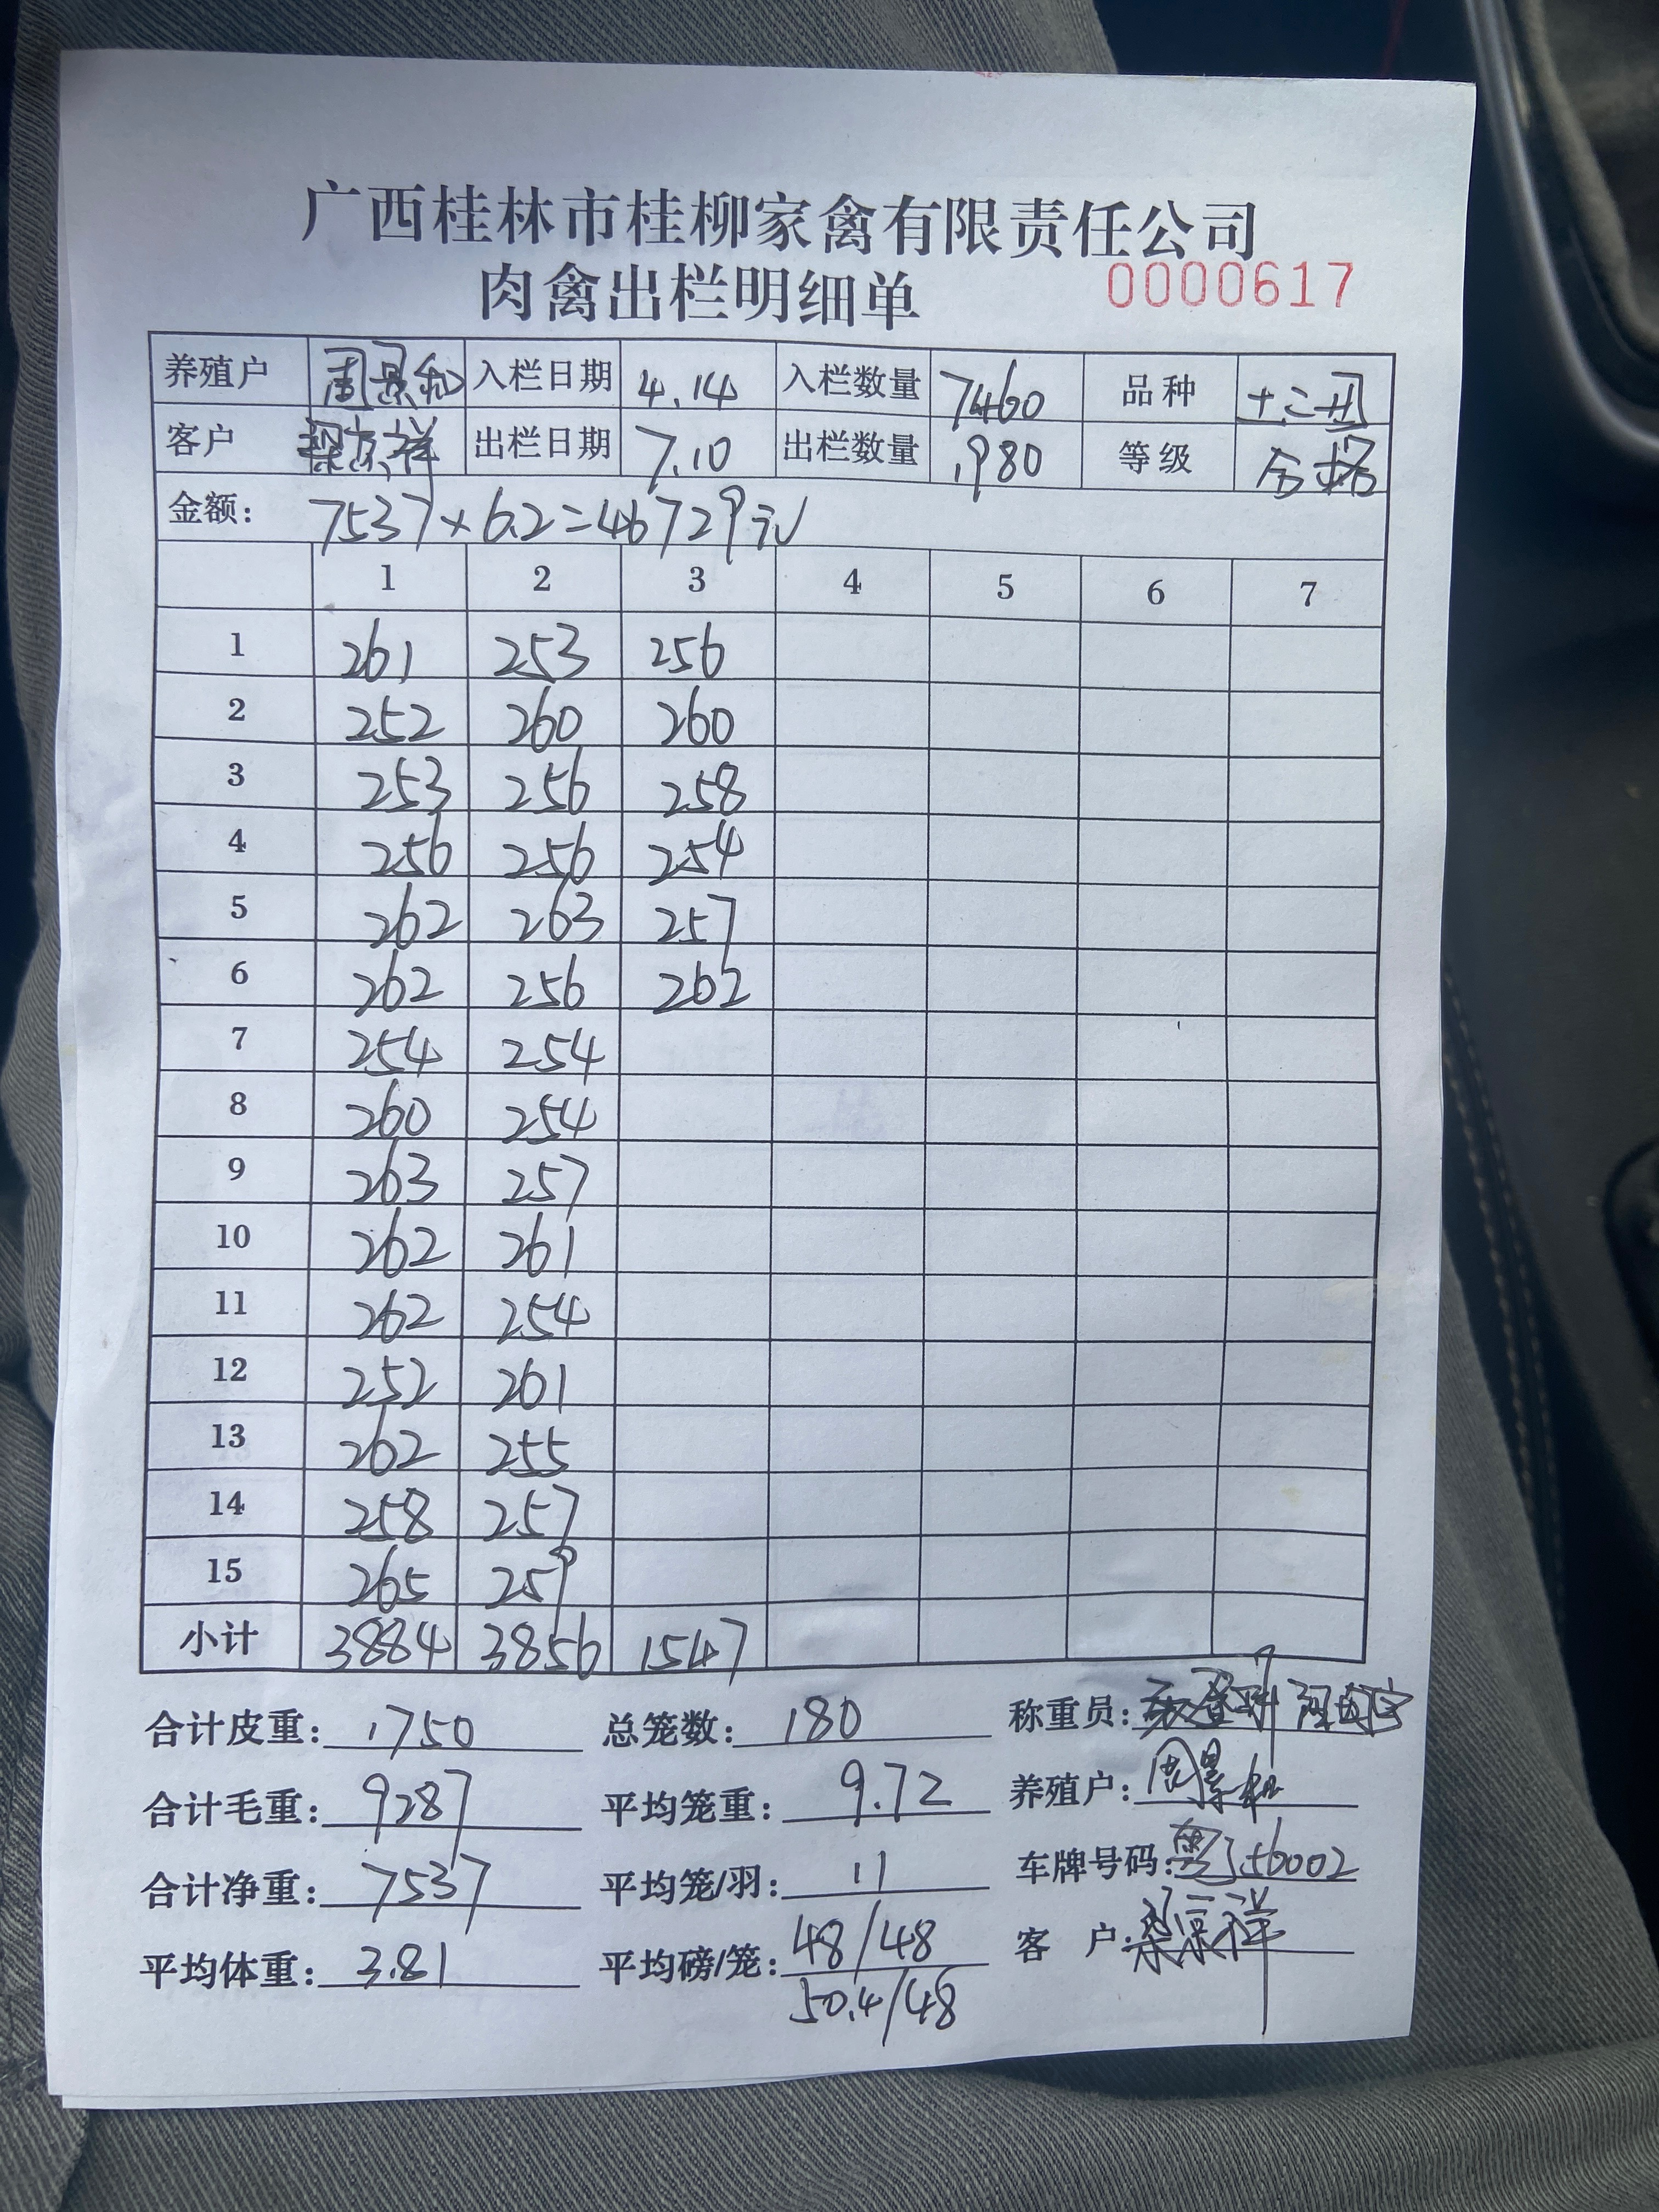 广西桂林市桂柳家禽有限责任公司
肉禽出栏明细单 0000617
养殖户 周景和 入栏日期 4.14 入栏数量 7460 品种
客户 梁宗祥 出栏日期 7.10 出栏数量 1980 等级 合格
金额: 7537×6.2=46729元
1 2 3 4 5 6 7
1 261 253 256
2 252 260 260
3 253 256 258
4 256 256 254
5 262 263 257
6 262 256 262
7 254 254
8 260 254
9 263 257
10 262 261
11 262 254
12 252 261
13 262 255
14 258 257
15 265 259
小计 3884 3856 1547
合计皮重: 1750 总笼数: 180 称重员:
合计毛重: 9287 平均笼重: 9.72 养殖户: 周景和
合计净重: 7537 平均笼/羽: 11 车牌号码:
平均体重: 3.81 平均磅/笼: 48/48 客 户: 梁宗祥
50.4/48